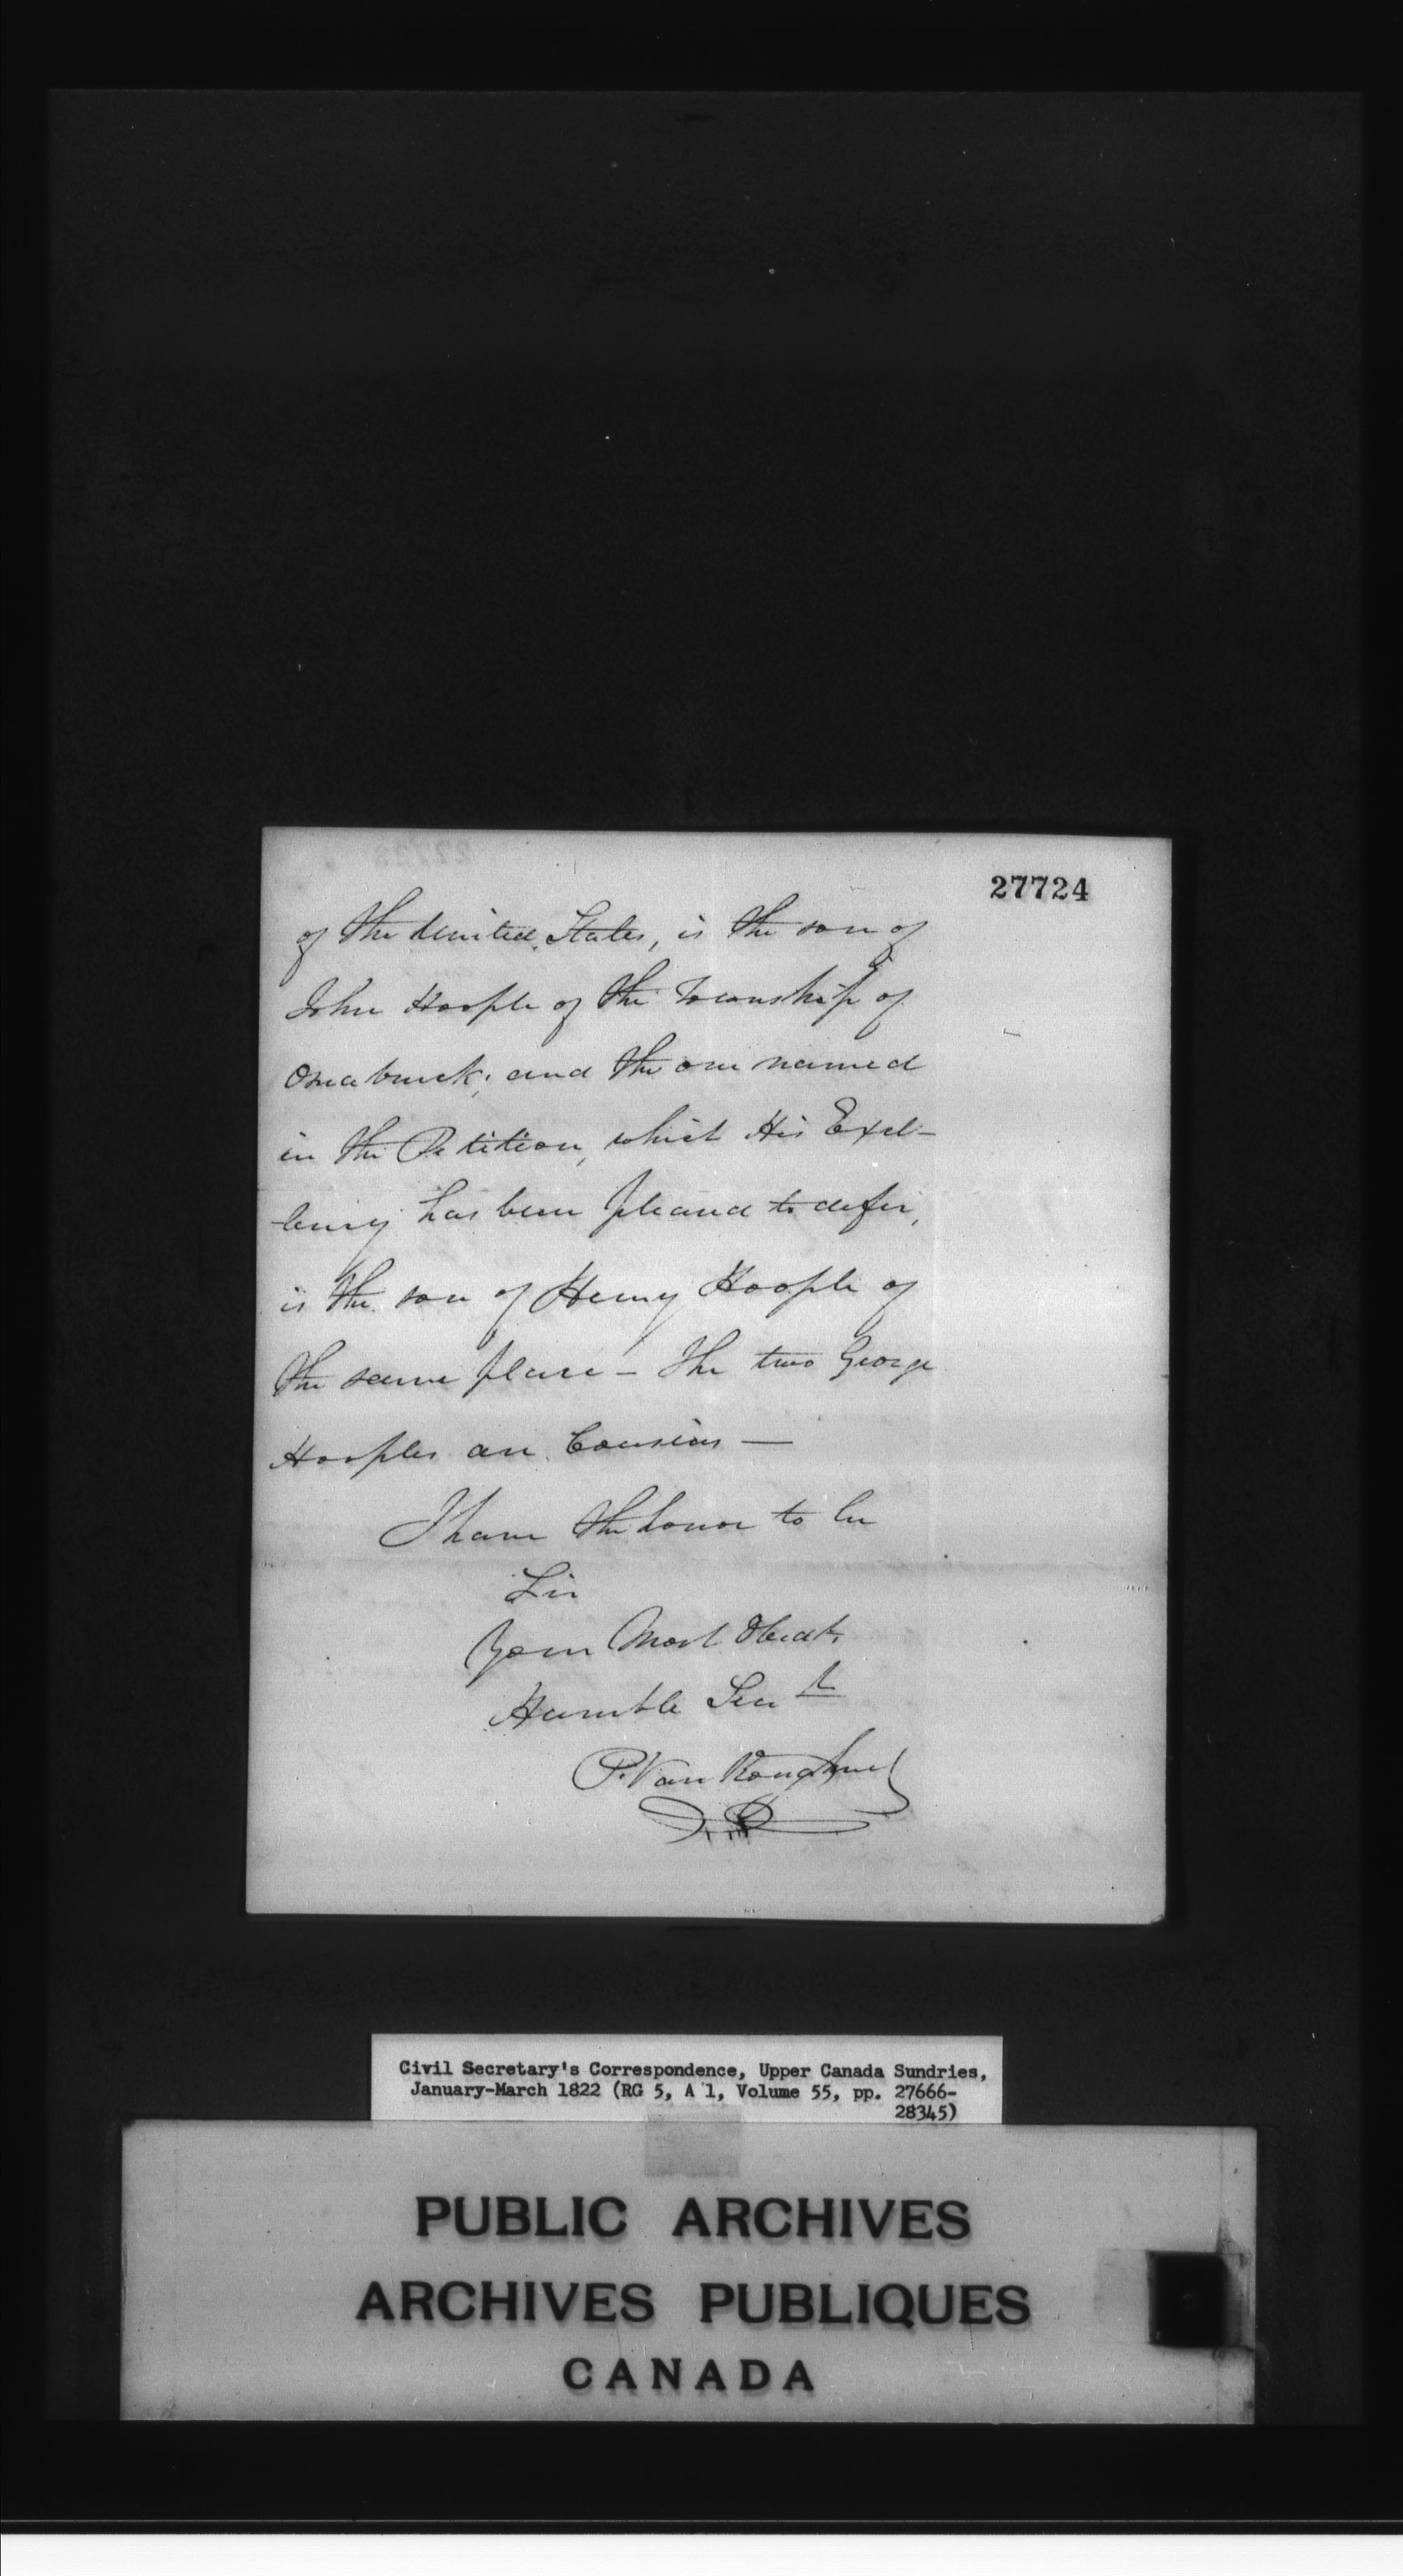 27724
of the United States, is the son of
John Hoople of the Township of
Osnabruck; and the one named
in the Petition, which His Excel-
lency has been pleased to defer,
is the son of Henry Hoople of
the same place - The two George
Hooples are Cousins -
I have the honor to be
Sir
Your Most Obedt.
Humble Servt
P. Van Koughnet
Civil Secretary's Correspondence, Upper Canada Sundries,
January-March 1822 (RG 5, A 1, Volume 55, pp. 27666-
28345)
PUBLIC ARCHIVES
ARCHIVES PUBLIQUES
CANADA